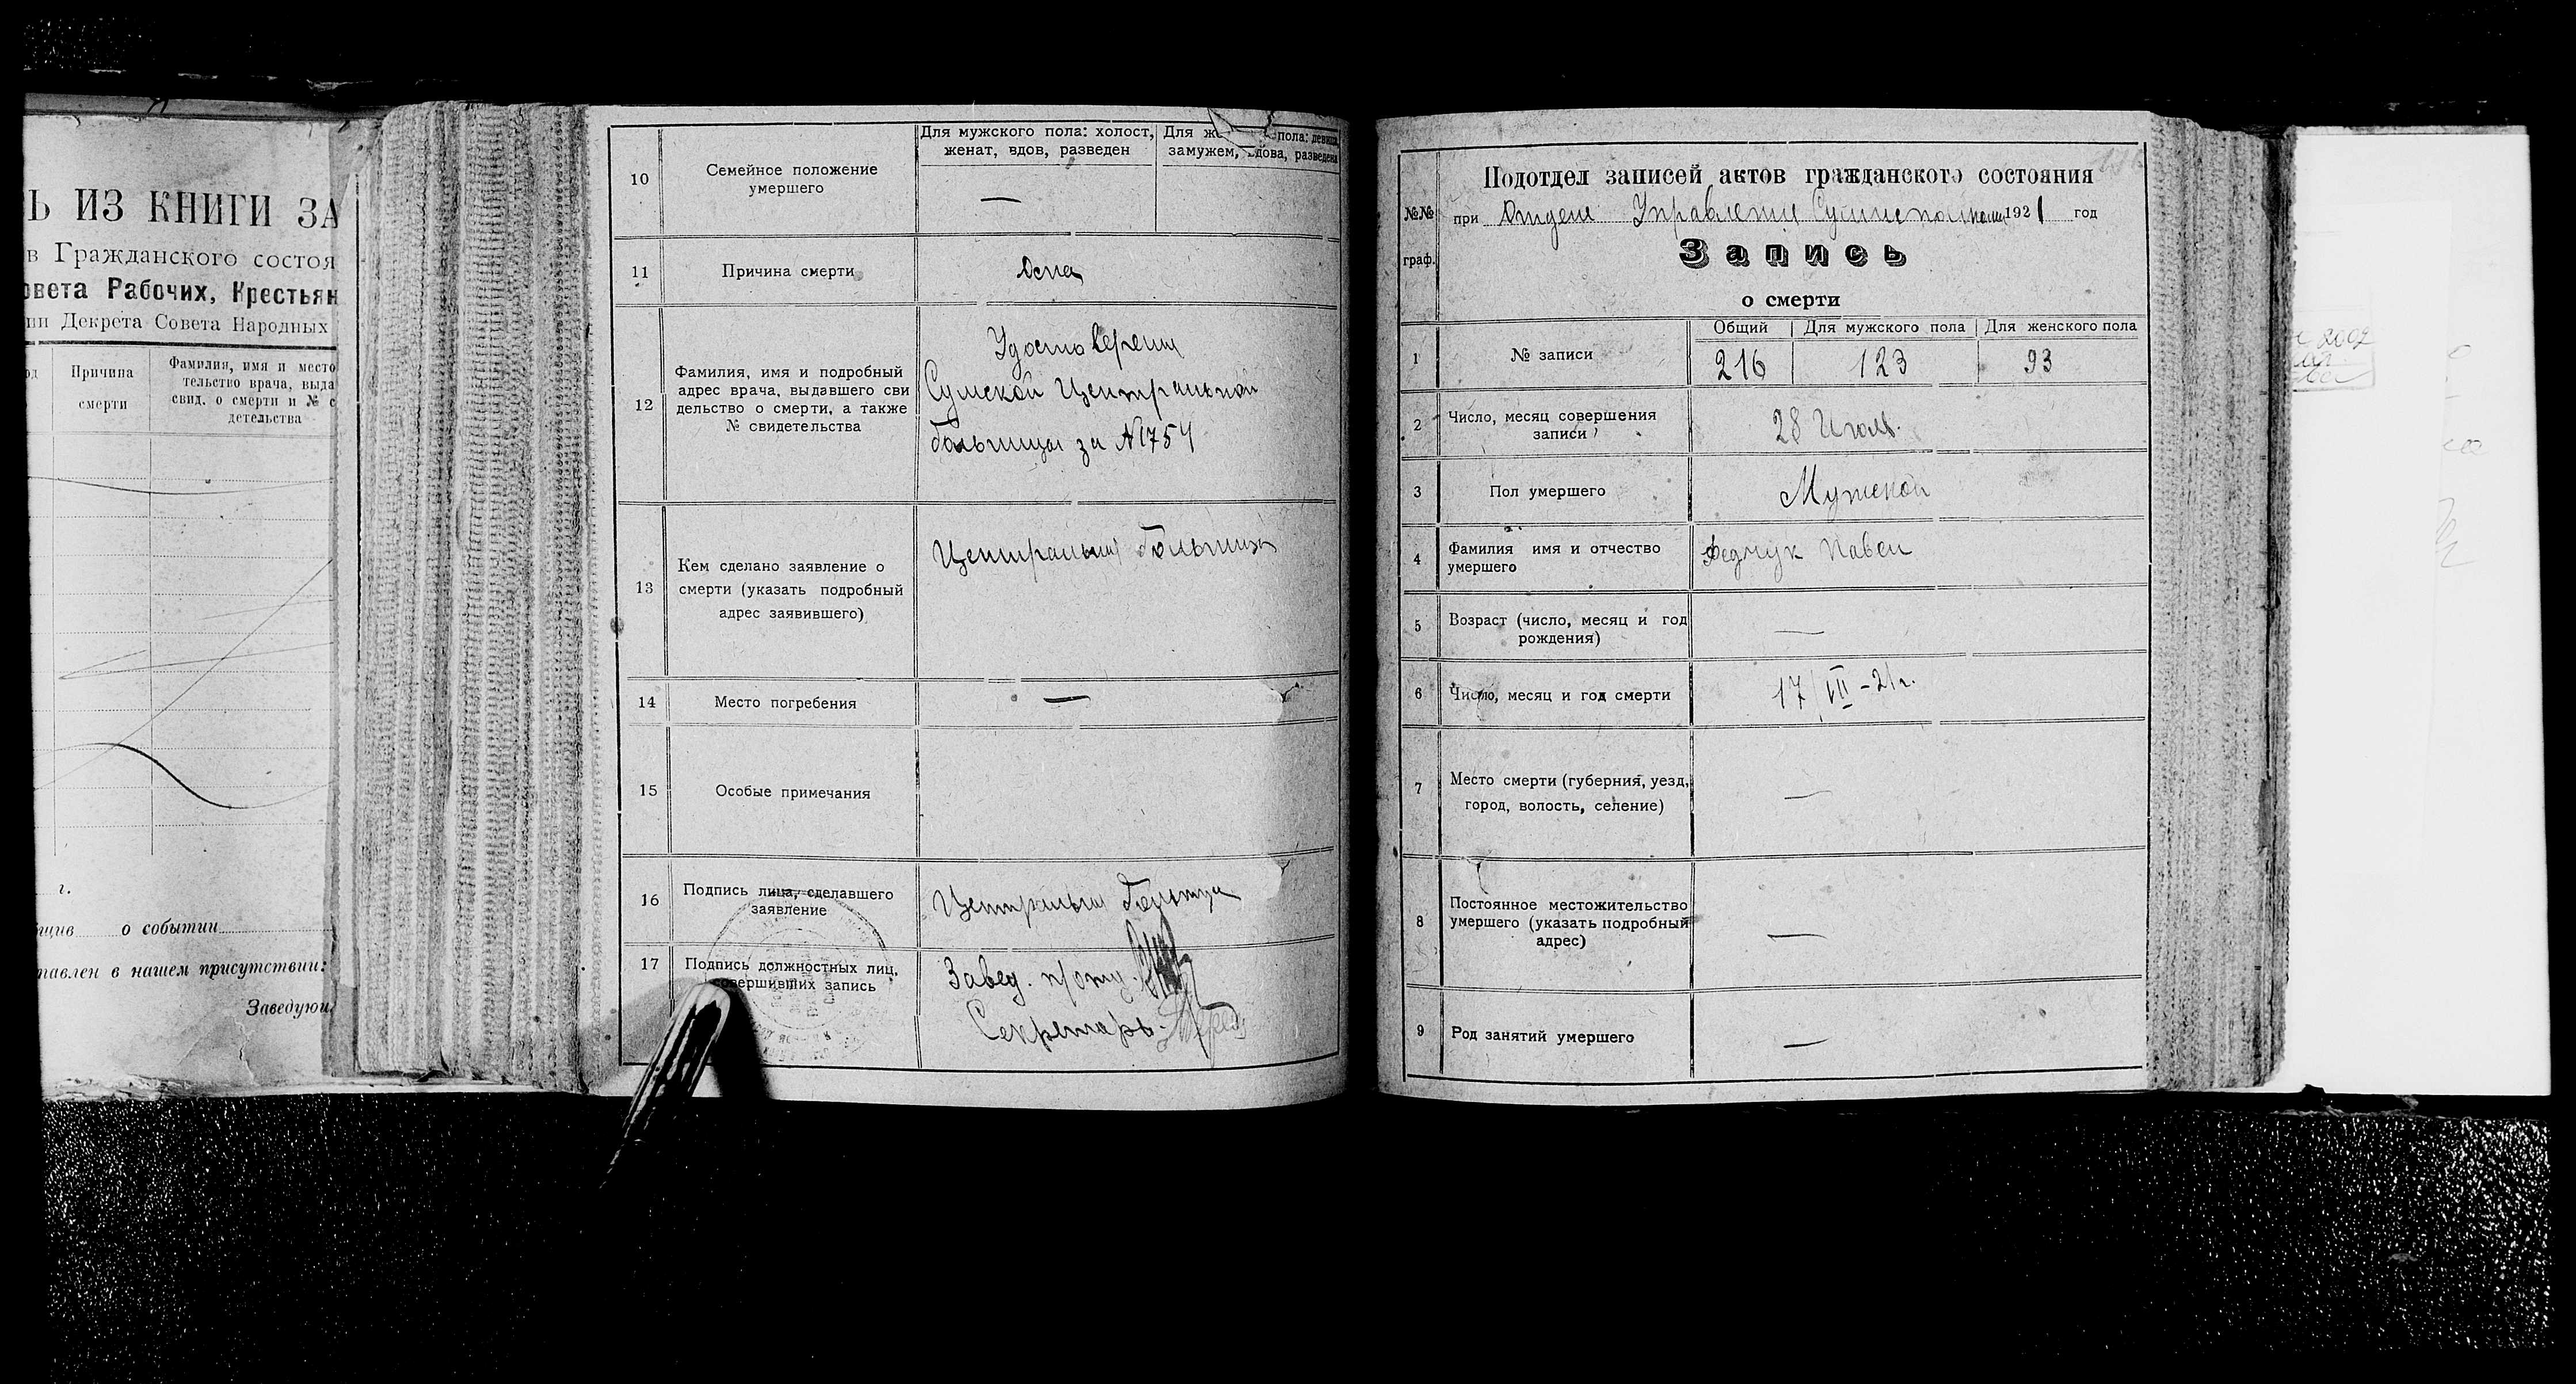 Ь ИЗ КНИГИ ЗА
в Гражданского состоя
овета Рабочих, Крестьян
ии Декрета Совета Народных
од
Причина
смерти
Фамилия, имя и место
тельство врача, выда
свид. о смерти и № с
детельства
г.
бщив о событии
тавлен в нашем присутствии:
Заведующ
10
Семейное положение
умершего
Для мужского пола: холост,
женат, вдов, разведен
—
Для же пола: девица,
замужем, вдова, разведена
11
Причина смерти
Оспа
12
Фамилия, имя и подробный
адрес врача, выдавшего сви
дельство о смерти, а также
№ свидетельства
Удостоверения
Сумской Центральной
больницы за №1754
13
Кем сделано заявление о
смерти (указать подробный
адрес заявившего)
Центральная больница
14
Место погребения
—
15
Особые примечания
16
Подпись лица, сделавшего
заявление
Центральная больница
17
Подпись должностных лиц,
совершивших запись
Завед. п/отд.
Секретарь
№№
граф.
Подотдел записей актов гражданского состояния
при Отделе Управления 1921 год
Запись
о смерти
1
№ записи
Общий
216
Для мужского пола
123
Для женского пола
93
2
Число, месяц совершения
записи
28 Июль.
3
Пол умершего
Мужской
4
Фамилия имя и отчество
умершего
Федчук Павел
5
Возраст (число, месяц и год
рождения)
—
6
Число, месяц и год смерти
17/VII-21г.
7
Место смерти (губерния, уезд,
город, волость, селение)
—
8
Постоянное местожительство
умершего (указать подробный
адрес)
—
9
Род занятий умершего
—